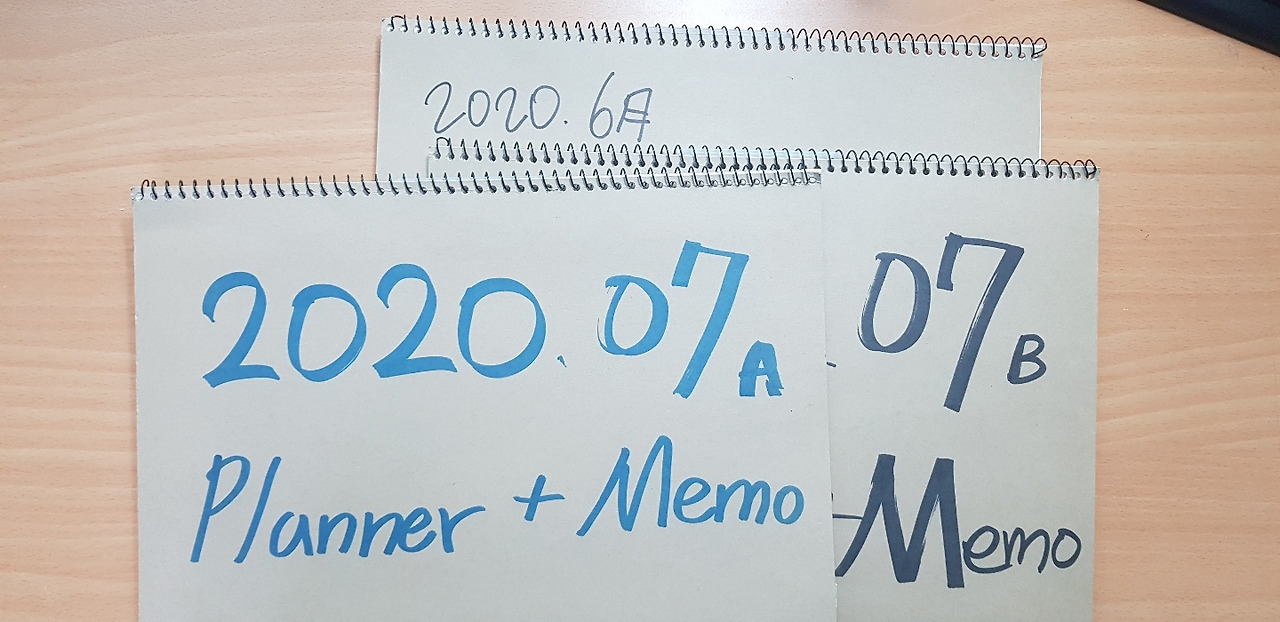 2020. 6A
2020. 07 A
Planner + Memo
07 B
Memo